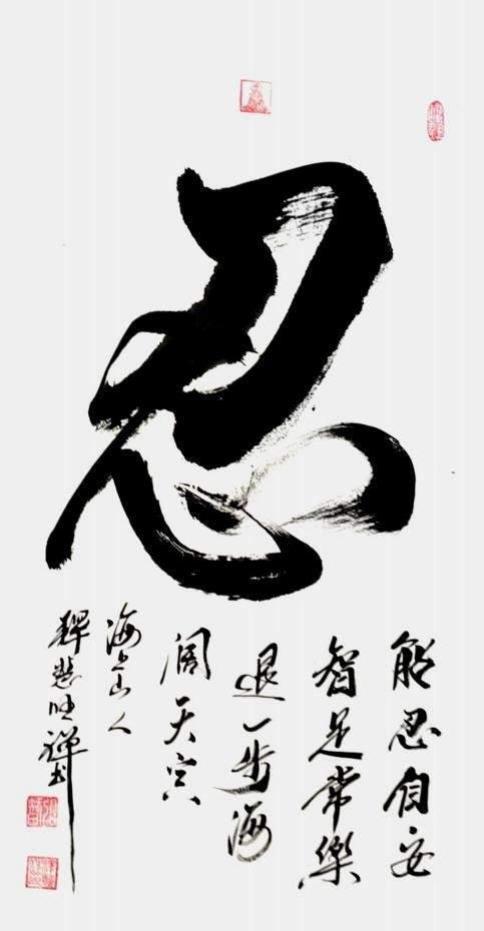 忍
能忍自安
智足常樂
退一步海
闊天空
海上山人
釋慧禪书